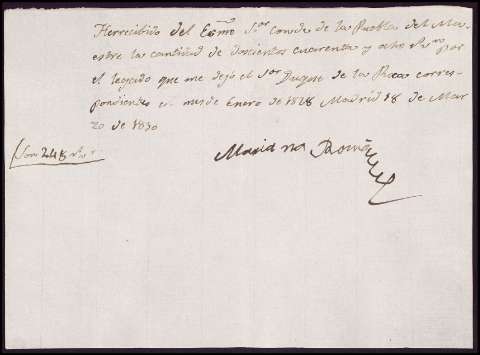 He recibido del Exmo Sor Conde de la Puebla del Ma-
estre la cantidad de doscientos cuarenta y ocho rs von por
el legado que me dejó el Sor Duque de la Roca corres-
pondiente al mes de Enero de 1828 Madrid 18 de Mar
zo de 1830
Mariana Román
Son 248 rs von